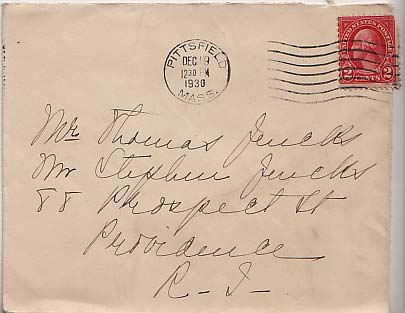 PITTSFIELD
DEC 19
1230 PM
1930
MASS.
UNITED STATES POSTAGE
2 CENTS 2
Mr Thomas Jencks
Mr Stephen Jencks
88 Prospect St
Providence
R-I-